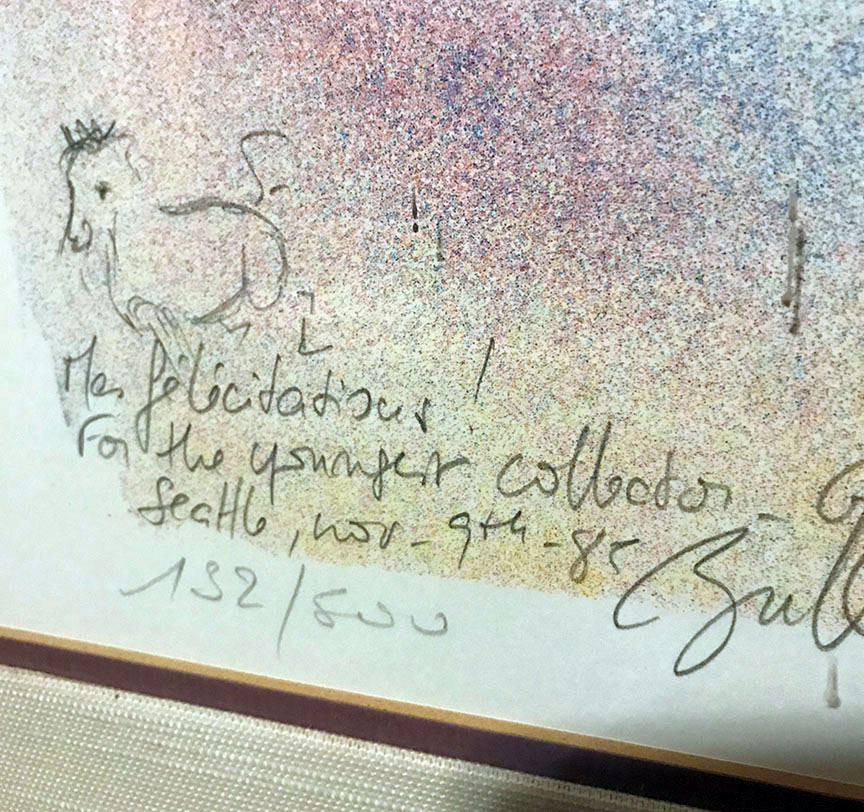 Mes félicitations !
For the youngest collector -
Seattle, nov - 9th - 85
132/500